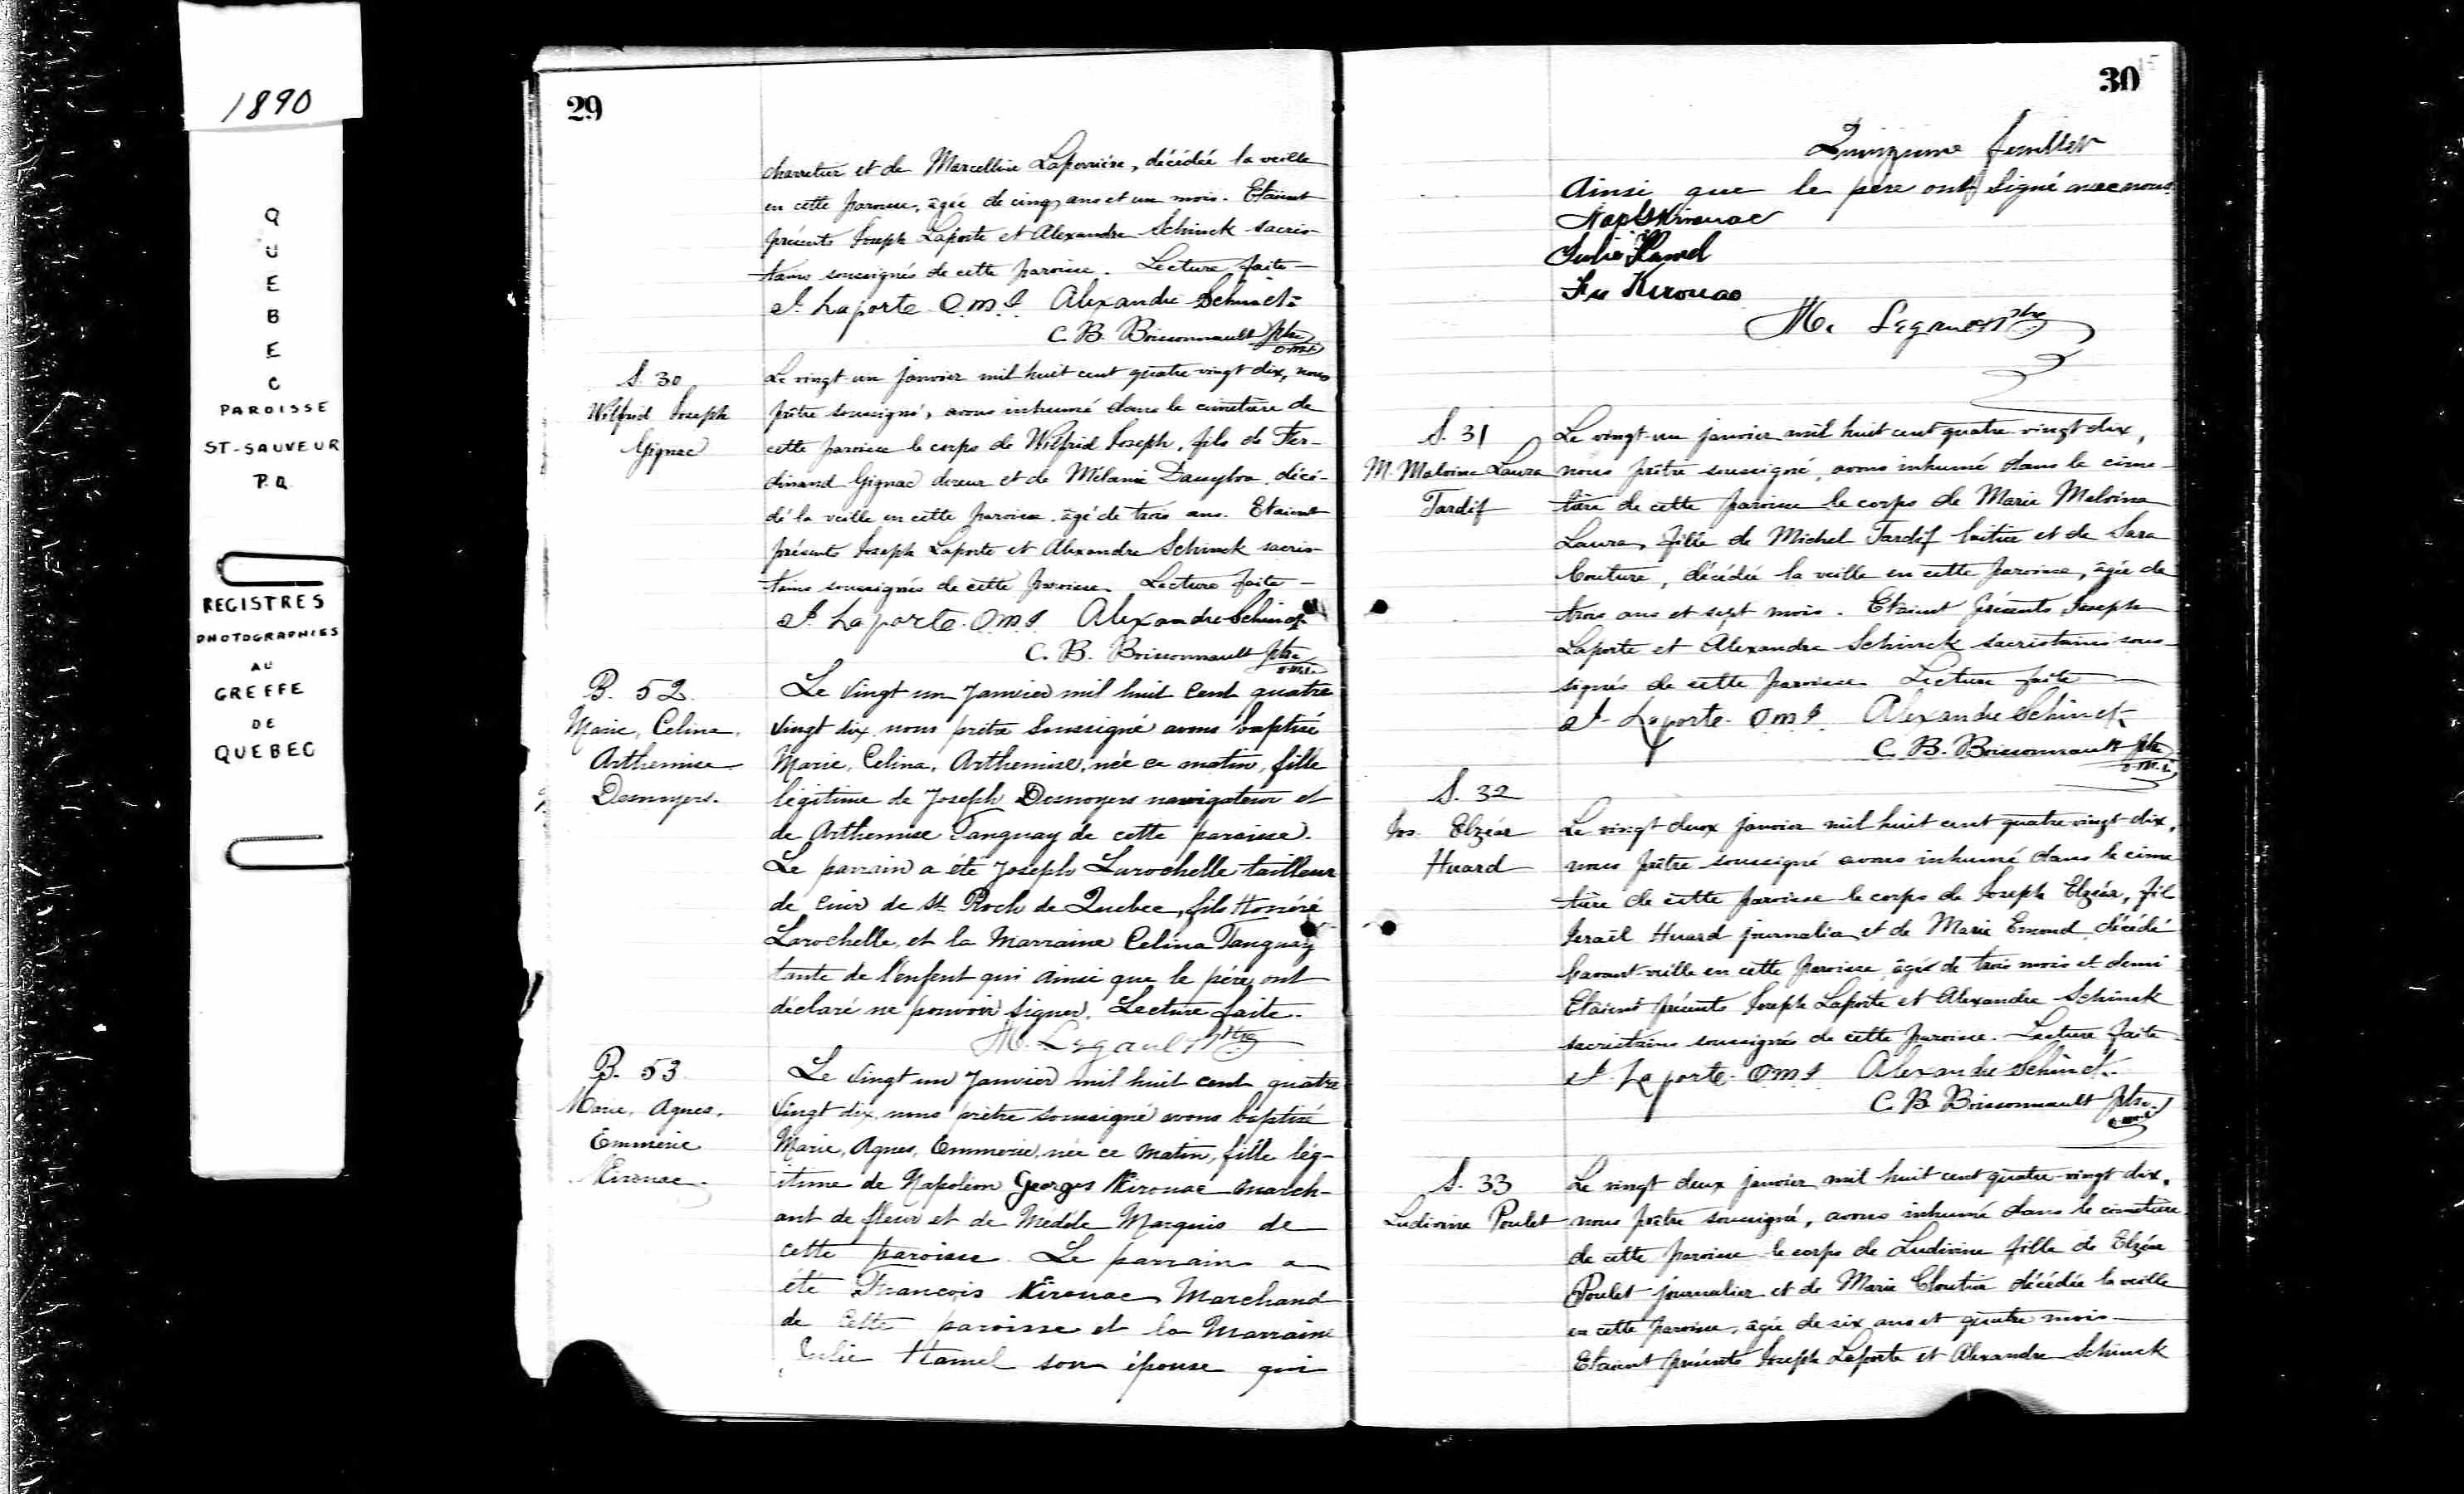 1890
Q
U
E
B
E
C
PAROISSE
ST-SAUVEUR
P.Q
REGISTRES
PHOTOGRAPHIES
AU
GREFFE
DE
QUEBEC
29
charretier et de Marcelline Laperrière, décédée la veille
en cette paroisse, âgée de cinq ans et un mois. Etaient
présents Joseph Laporte et Alexandre Schinck sacris-
tains soussignés de cette paroisse. Lecture faite —
J. Laporte O.M.I. Alexandre Schinck
C. B. Boissonnault ptre
o.m.i.
S. 30
Wilfrid Joseph
Gignac
Le vingt un janvier mil huit cent quatre vingt dix, nous
prêtre soussigné, avons inhumé dans le cimetière de
cette paroisse le corps de Wilfrid Joseph, fils de Fer-
dinand Gignac doreur et de Mélanie Dauylva, décé-
dé la veille en cette paroisse, âgé de trois ans. Etaient
présents Joseph Laporte et Alexandre Schinck sacris-
tains soussignés de cette paroisse. Lecture faite —
J. Laporte O.M.I. Alexandre Schinck
C. B. Boissonnault ptre
o.m.i.
B. 52.
Marie, Celina,
Arthemise
Desnoyers.
Le vingt un Janvier mil huit cent quatre
vingt dix nous prêtre soussigné avons baptisé
Marie, Celina, Arthemise, née ce matin, fille
légitime de Joseph Desnoyers navigateur et
de Arthemise Tanguay de cette paroisse.
Le parrain a été Joseph Larochelle tailleur
de cuir de St. Roch de Quebec, fils Honoré
Larochelle, et la Marraine Celina Tanguay
tante de l'enfent qui ainsi que le père ont
déclaré ne pouvoir signer. Lecture faite.
H. Legault Ptre
B. 53
Marie, Agnes,
Emmerie
Kirouac.
Le vingt un Janvier mil huit cent quatre
vingt dix nous prêtre soussigné avons baptisé
Marie, Agnes, Emmerie, née ce matin, fille lég-
itime de Napoléon Georges Kirouac march-
ant de fleur et de Médéle Marquis de
cette paroisse. Le parrain a
été François Kirouac Marchand
de cette paroisse et la Marraine
Julie Hamel son épouse qui
30
15
Quinzieme feuillet
Ainsi que le père ont signé avec nous
Nap G Kirouac
Julie Hamel
Frs Kirouac
H. Legault Ptre
S. 31
M. Maloina Laura
Tardif
Le vingt-un janvier mil huit cent quatre-vingt dix,
nous prêtre soussigné, avons inhumé dans le cime-
tière de cette paroisse le corps de Marie Maloina
Laura, fille de Michel Tardif laitier et de Sara
Couture, décédée la veille en cette paroisse, âgée de
trois ans et sept mois. Etaient présents Joseph
Laporte et Alexandre Schinck sacristains sous-
signés de cette paroisse Lecture faite —
J. Laporte O.M.I. Alexandre Schinck
C. B. Boissonnault ptre
o.m.i.
S. 32
Jos. Elzéar
Huard
Le vingt deux janvier mil huit cent quatre vingt dix,
nous prêtre soussigné avons inhumé dans le cime
tière de cette paroisse le corps de Joseph Elzéar, fil
Israël Huard journalier et de Marie Emond, décédé
l'avant-veille en cette paroisse âgé de trois mois et demi
Etaient présents Joseph Laporte et Alexandre Schinck
sacristains soussignés de cette paroisse. Lecture faite
J. Laporte O.M.I. Alexandre Schinck
C. B. Boissonnault ptre.
o.m.i.
S. 33
Ludivine Poulet
Le vingt deux janvier mil huit cent quatre-vingt dix,
nous prêtre soussigné, avons inhumé dans le cimetière
de cette paroisse le corps de Ludivine fille de Elzéar
Poulet journalier et de Marie Cloutier décédée la veille
en cette paroisse, âgée de six ans et quatre mois —
Etaient présents Joseph Laporte et Alexandre Schinck